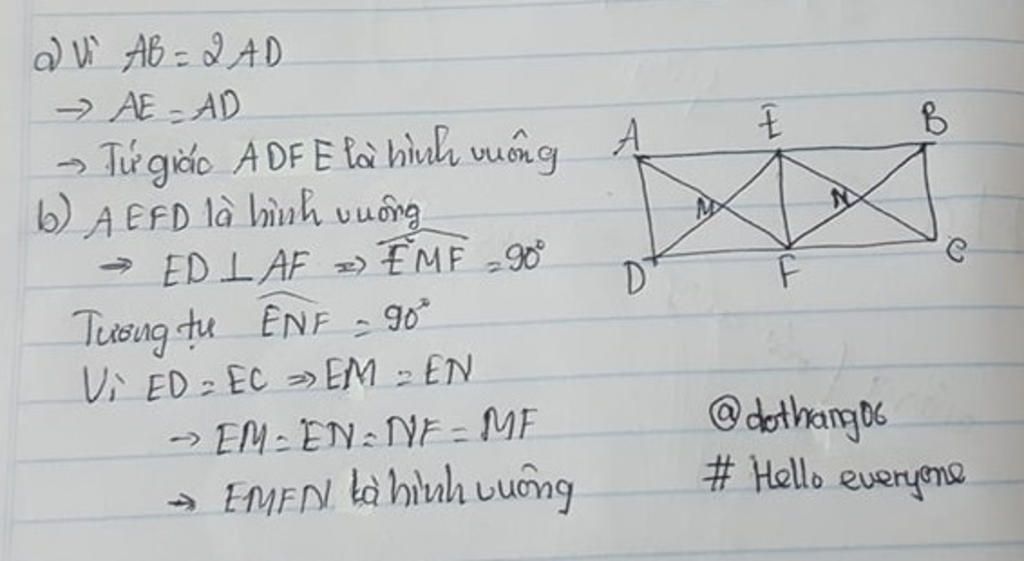 a) Vì AB = 2AD
→ AE = AD
→ Tứ giác ADFE là hình vuông
b) AEFD là hình vuông
→ ED ⊥ AF => \widehat{EMF} = 90°
Tương tự \widehat{ENF} = 90°
Vì ED = EC => EM = EN
→ EM = EN = NF = MF
→ EMFN là hình vuông
A E B
M N
D F C
@dothang06
# Hello everyone